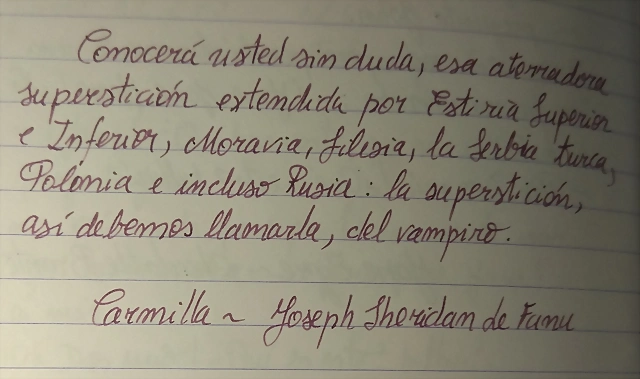 Conocerá usted sin duda, esa aterradora
superstición extendida por Estiria Superior
e Inferior, Moravia, Silesia, la Serbia turca,
Polonia e incluso Rusia: la superstición,
así debemos llamarla, del vampiro.
Carmilla ~ Joseph Sheridan de Fanu